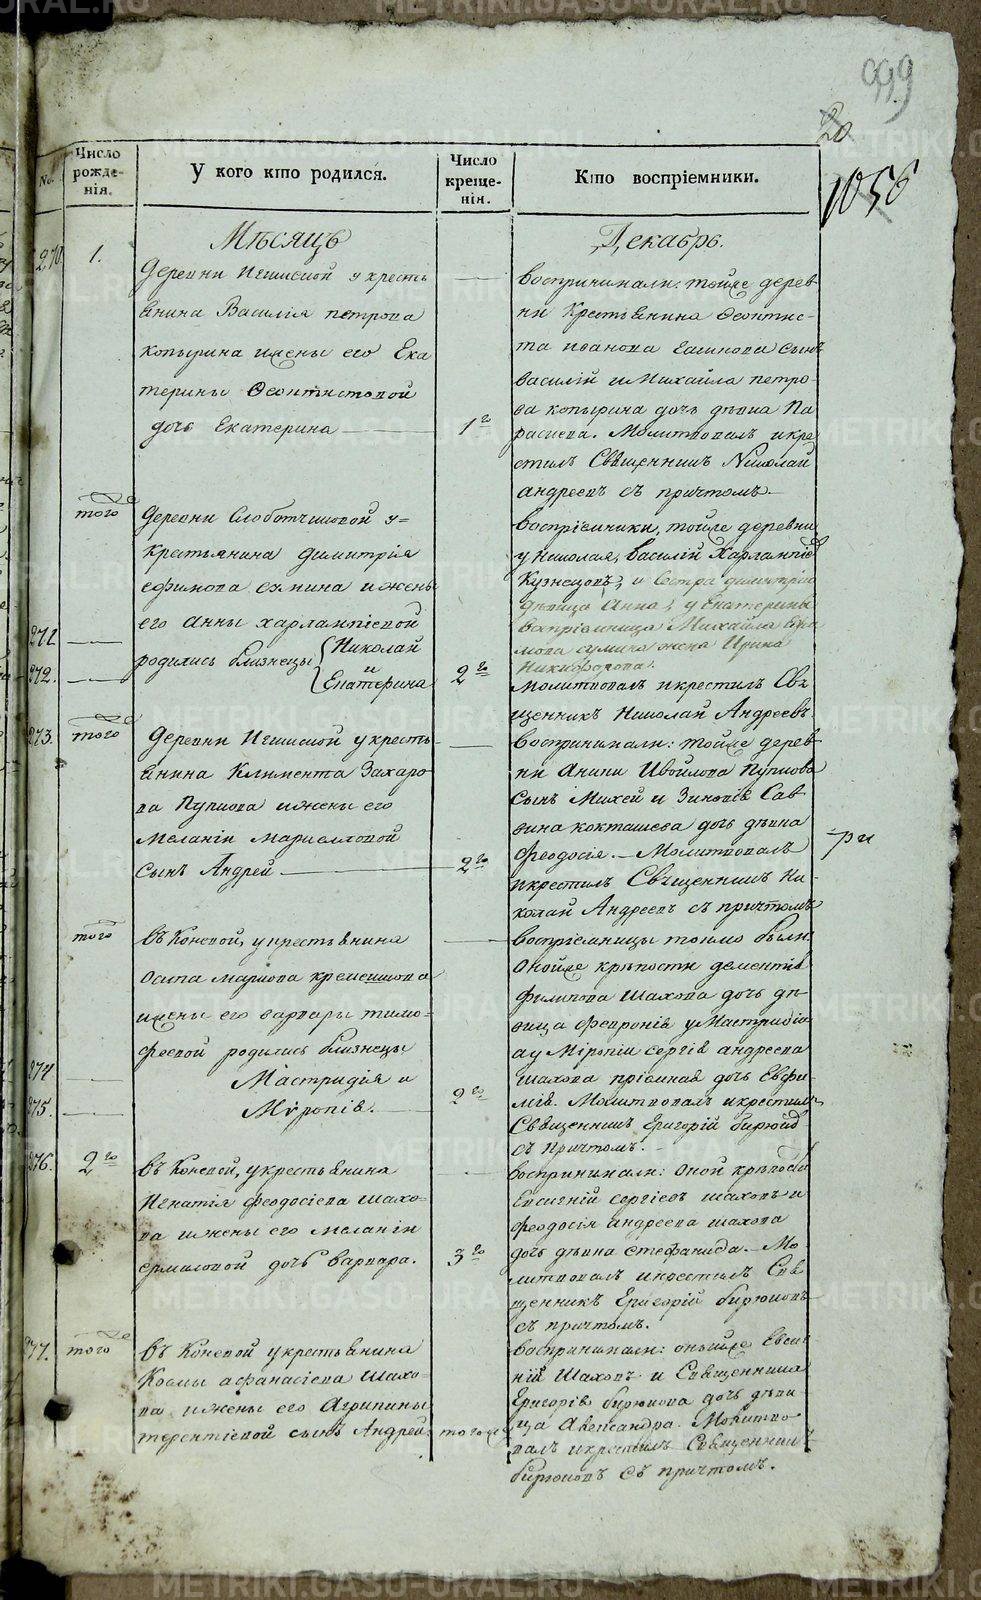 999
20
1056
№.
Число рожде- нія.
У кого кто родился.
Число креще- нія.
Кто воспріемники.
Мѣсяцъ
Декабрь.
270.
1.
Деревни у кресть
янина Василія петрова
копырина и жены его Ека
терины Феоктистовой
дочь Екатерина
1го
воспринимали: тойже дерев
ни Крестьянина Феоктис-
та иванова сынъ
василій и Михайла петро-
ва копырина дочь дѣвица Па
раскева. Молитвовалъ и кре
стилъ Священникъ Николай
андреевъ съ причтомъ
271
272.
того
Деревни у
крестьянина димитрія
ефимова и жены
его Анны харлампіевой
родились близнецы Николай
и
Екатерина
2го
воспріемники, тойже деревни
у Николая, Василій Харлампіев
Кузнецовъ, и Сестра димитрія
дѣвица Анна, у Екатерины
воспріемница Михайла
жена Ирина
Никифорова.
Молитвовалъ и крестилъ Свя
щенникъ Николай Андреевъ
273.
того
Деревни у кресть
янина Климента Захаро
ва Пупкова и жены его
Меланіи маркеловой
сынъ Андрей
2го
воспринимали: тойже дерев
ни Пупкова
сынъ Михей и Зиновія Сав
вина кокташева дочь дѣвица
Феодосія. Молитвовалъ
и крестилъ Священникъ Ни
колай Андреевъ съ причтомъ
274
275.
того
въ Коневой, у крестьянина
Осипа маркова
и жены его варвары тимо-
феевой родились близнецы
Мастридія и
Міропія.
2го
воспріемницы токмо были:
Онойже крѣпости дементія
филипова Шахова дочь дѣ-
вица Февронія у Мастридіи
а у Міропіи сергія андреева
шахова пріемная дочь Евфи-
мія. Молитвовалъ и крестилъ
Священникъ Григорій бирюков
съ причтомъ.
276.
2го
въ Коневой, у крестьянина
Игнатія феодосіева шахо-
ва и жены его меланіи
ермиловой дочь варвара.
3го
воспринимали: Оной крѣпости
Евгеній сергіевъ шаховъ и
Феодосія андреева шахова
дочь дѣвица стефанида. Мо
литвовалъ и крестилъ Свя
щенникъ Григорій бирюковъ
съ причтомъ.
277.
того
въ Коневой у крестьянина
Космы афанасіева шахо-
ва и жены его Агрипины
терентіевой сынъ Андрей
тогоже
воспринимали: онойже Евге
ній Шаховъ и Священника
Григорія бирюкова дочь дѣви
ца Александра. Молитво
валъ и крестилъ Священникъ
бирюковъ съ причтомъ.
METRIKI.GASU-URAL.RU